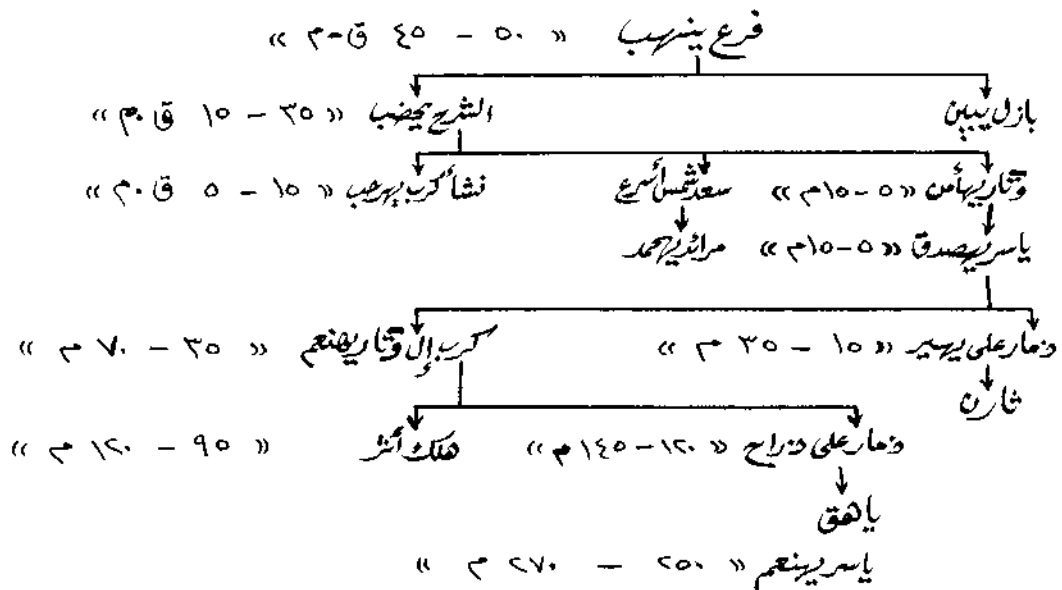 فرع ينهب « ٥٠ - ٤٥ ق.م »
بازل يبين الشرح يحضب « ٣٥ - ١٥ ق.م »
وتار يهأمن « ٥-١٥م » سعد شمس أسرع نشأ كرب يهرحب « ١٥ - ٥ ق.م »
ياسر يهصدق « ٥-١٥م » مراثد يهحمد
ذمار على يهبر « ١٥ - ٣٥ م » كرب إل وتار يهنعم « ٣٥ - ٧٠ م »
ثارن
ذمار على ذراح « ١٢٠-١٤٥ م » هلك أمر « ٩٥ - ١٢٠ م »
ياهق
ياسر يهنعم « ٢٥٠ - ٢٧٠ م »